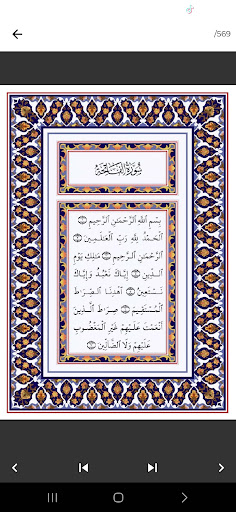 /569
سُورَةُ الفَاتِحَةِ
بِسْمِ ٱللَّهِ ٱلرَّحْمَٰنِ ٱلرَّحِيمِ ١
ٱلْحَمْدُ لِلَّهِ رَبِّ ٱلْعَٰلَمِينَ ٢
ٱلرَّحْمَٰنِ ٱلرَّحِيمِ ٣ مَٰلِكِ يَوْمِ
ٱلدِّينِ ٤ إِيَّاكَ نَعْبُدُ وَإِيَّاكَ
نَسْتَعِينُ ٥ ٱهْدِنَا ٱلصِّرَٰطَ
ٱلْمُسْتَقِيمَ ٦ صِرَٰطَ ٱلَّذِينَ
أَنْعَمْتَ عَلَيْهِمْ غَيْرِ ٱلْمَغْضُوبِ
عَلَيْهِمْ وَلَا ٱلضَّآلِّينَ ٧